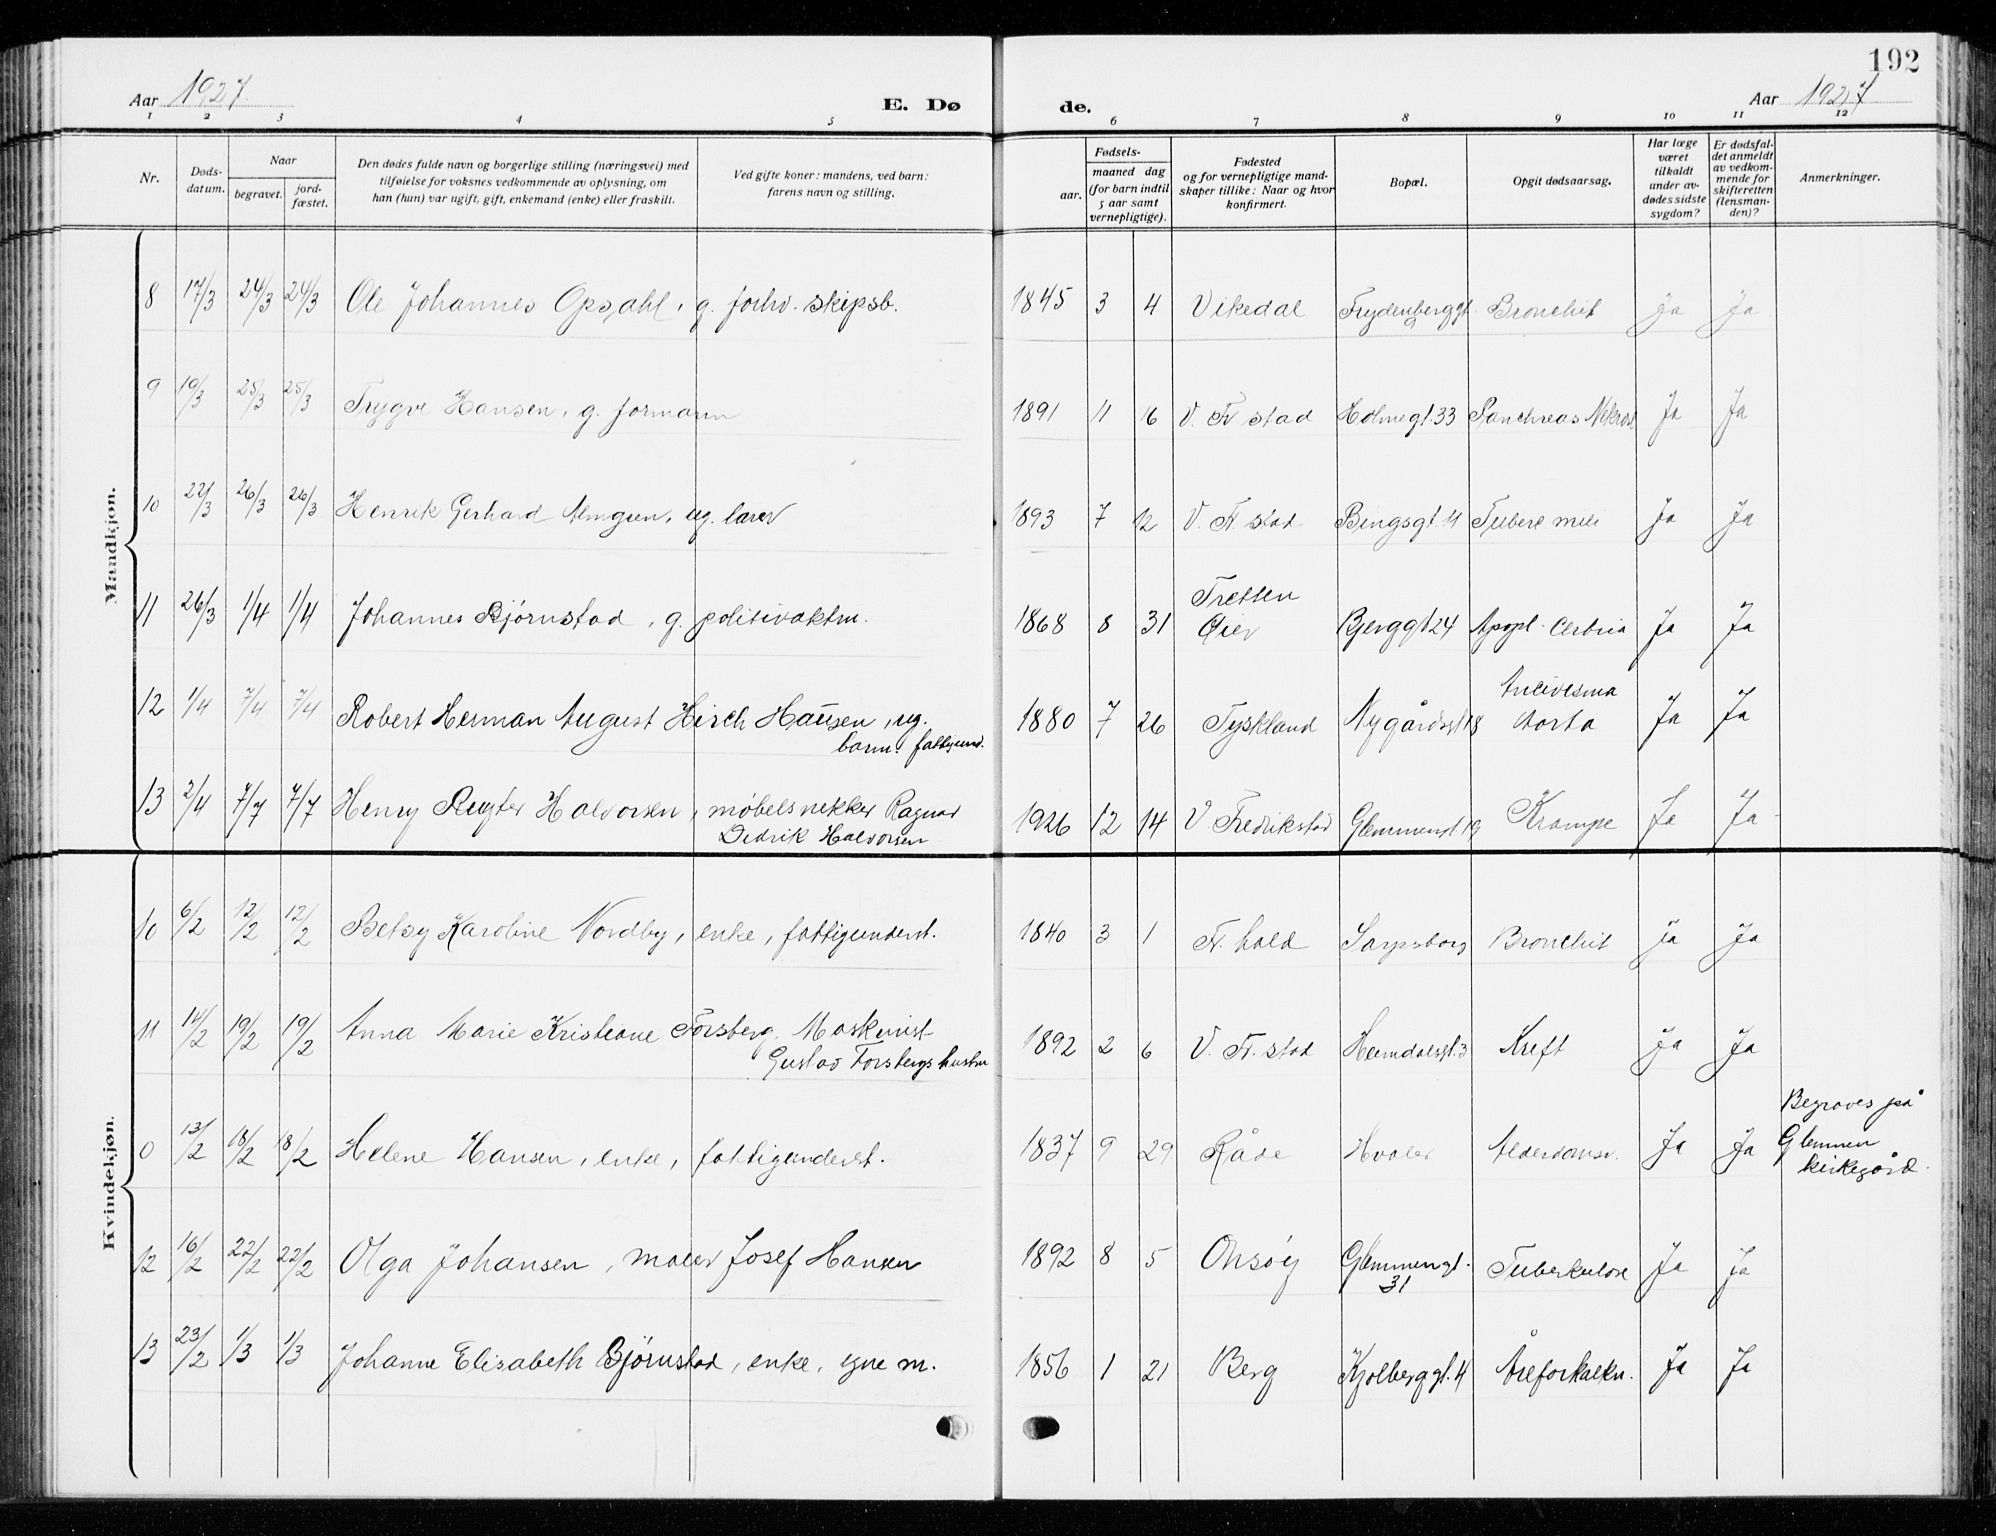 192
Aar 1927
E. Dø
de.
Aar 1927
1 2 3 4 5 6 7 8 9 10 11 12
Nr.
Døds-
datum.
Naar
begravet.
jord-
fæstet.
Den dødes fulde navn og borgerlige stilling (næringsvei) med
tilføielse for voksnes vedkommende av oplysning, om
han (hun) var ugift, gift, enkemand (enke) eller fraskilt.
Ved gifte koner: mandens, ved barn:
farens navn og stilling.
Fødsels-
aar.
maaned dag
(for barn indtil
5 aar samt
vernepligtige).
Fødested
og for vernepligtige mand-
skaper tillike: Naar og hvor
konfirmert.
Bopæl.
Opgit dødsaarsag.
Har læge
været
tilkaldt
under av-
dødes sidste
sygdom?
Er dødsfal-
det anmeldt
av vedkom-
mende for
skifteretten
(lensman-
den)?
Anmerkninger.
Mandkjøn.
8 17/3 24/3 24/3 Ole Johannes Opsahl, g. forhv. skipsb. 1845 3 4 Vikedal Frydenberggt. Bronchit Ja Ja
9 19/3 25/3 25/3 Trygve Hansen, g. formann 1891 11 6 V. Fr stad Holmegt. 33 Panchreas Nekrose Ja Ja
10 22/3 26/3 26/3 Henrik Gerhard Almgren, ug. lærer 1893 7 12 V. Fr. stad Bingsgt. 11 Ja Ja
11 26/3 1/4 1/4 Johannes Bjørnstad, g. politivaktm. 1868 8 31 Tretten
Øier Bjerggt 24 Apopl. Ja Ja
12 1/4 7/4 7/4 Robert Herman August Hirch Hansen, ug.
barn. fattigund. 1880 7 26 Tyskland Nygårdsgt 18
Aorta Ja Ja
13 2/4 7/7 7/7 Henry Halvorsen, møbelsnekker Ragnar
Didrik Halvorsen 1926 12 14 V Fredrikstad Glemmengt 19 Krampe Ja Ja
Kvindekjøn.
10 6/2 12/2 12/2 Betsy Karoline Nordby, enke, fattigunderst. 1840 3 1 Fr. hald Sarpsborg Bronchit Ja Ja
11 14/2 19/2 19/2 Anna Marie Kristiane Forsberg. Maskinist
Gustav Forsbergs hustru 1892 2 6 V. Fr. stad Heimdalsgt. 3 Kreft Ja Ja
0 13/2 18/2 18/2 Helene Hansen, enke, fattigunderst. 1837 9 29 Råde Hvaler Alderdomsv. Ja Ja
Begraves på
Glemmen
kirkegård.
12 16/2 22/2 22/2 Olga Johansen, maler Josef Hansen 1892 8 5 Onsøy Glemmengt.
31 Tuberkulose Ja Ja
13 23/2 1/3 1/3 Johanne Elisabeth Bjørnstad, enke, egne m. 1856 1 21 Berg Kjølberggt. 4 Åreforkalkn. Ja Ja